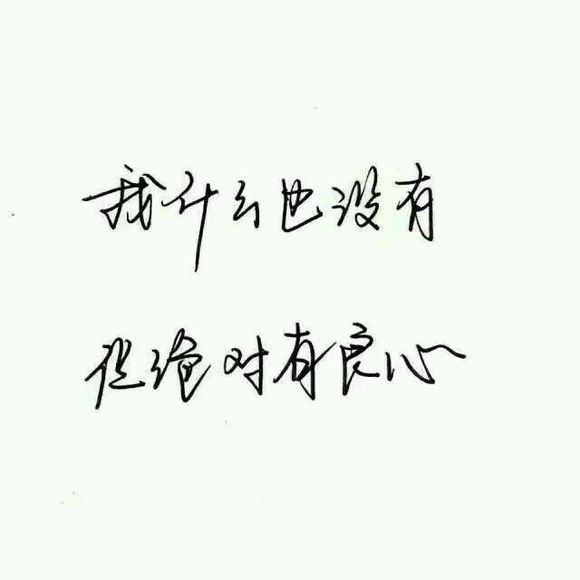 我什么也没有
但绝对有良心